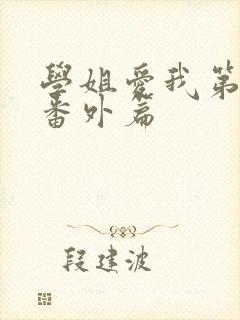 學姐愛我第
番外篇
段建波